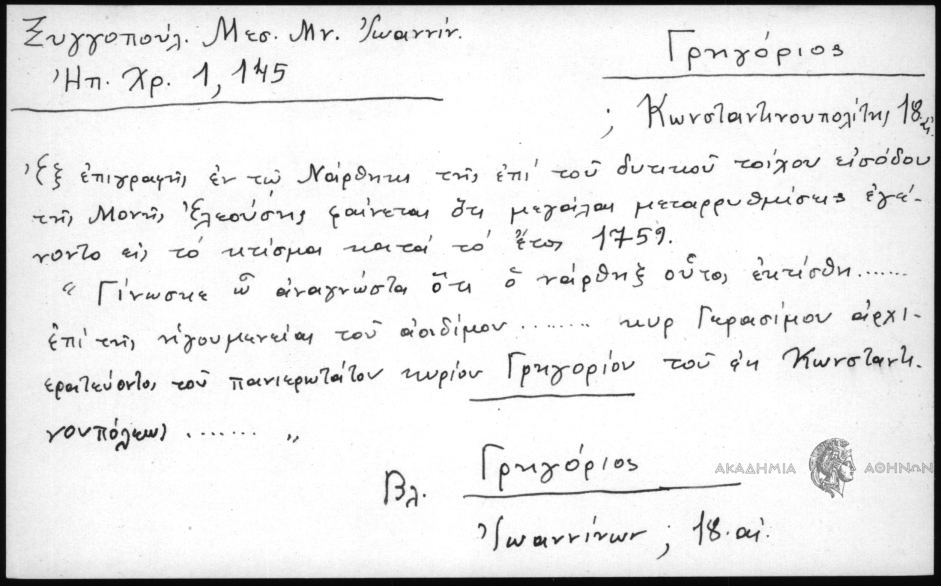 Ξυγγοπούλ. Μεσ. Μν. Ἰωαννίν.
Ἠπ. Χρ. 1, 145
Γρηγόριος
; Κωνσταντινουπολίτης 18. αἰ.
Ἐξ ἐπιγραφῆς ἐν τῷ Νάρθηκι τῆς ἐπί τοῦ δυτικοῦ τοίχου εἰσόδου
τῆς Μονῆς Ἐλεούσης φαίνεται ὅτι μεγάλαι μεταρρυθμίσεις ἐγέ-
νοντο εἰς τό κτίσμα κατά τό ἔτος 1759.
" Γίνωσκε ὦ ἀναγνῶστα ὅτι ὁ νάρθηξ οὗτος ἐκτίσθη.......
ἐπί τῆς ἡγουμενείας τοῦ ἀοιδίμου ........ κυρ Γερασίμου ἀρχι-
ερατεύοντος τοῦ πανιερωτάτου κυρίου Γρηγορίου τοῦ ἐκ Κωνσταντι-
νουπόλεως ....... "
Βλ. Γρηγόριος
Ἰωαννίνων ; 18. αἰ.
ΑΚΑΔΗΜΙΑ ΑΘΗΝΩΝ